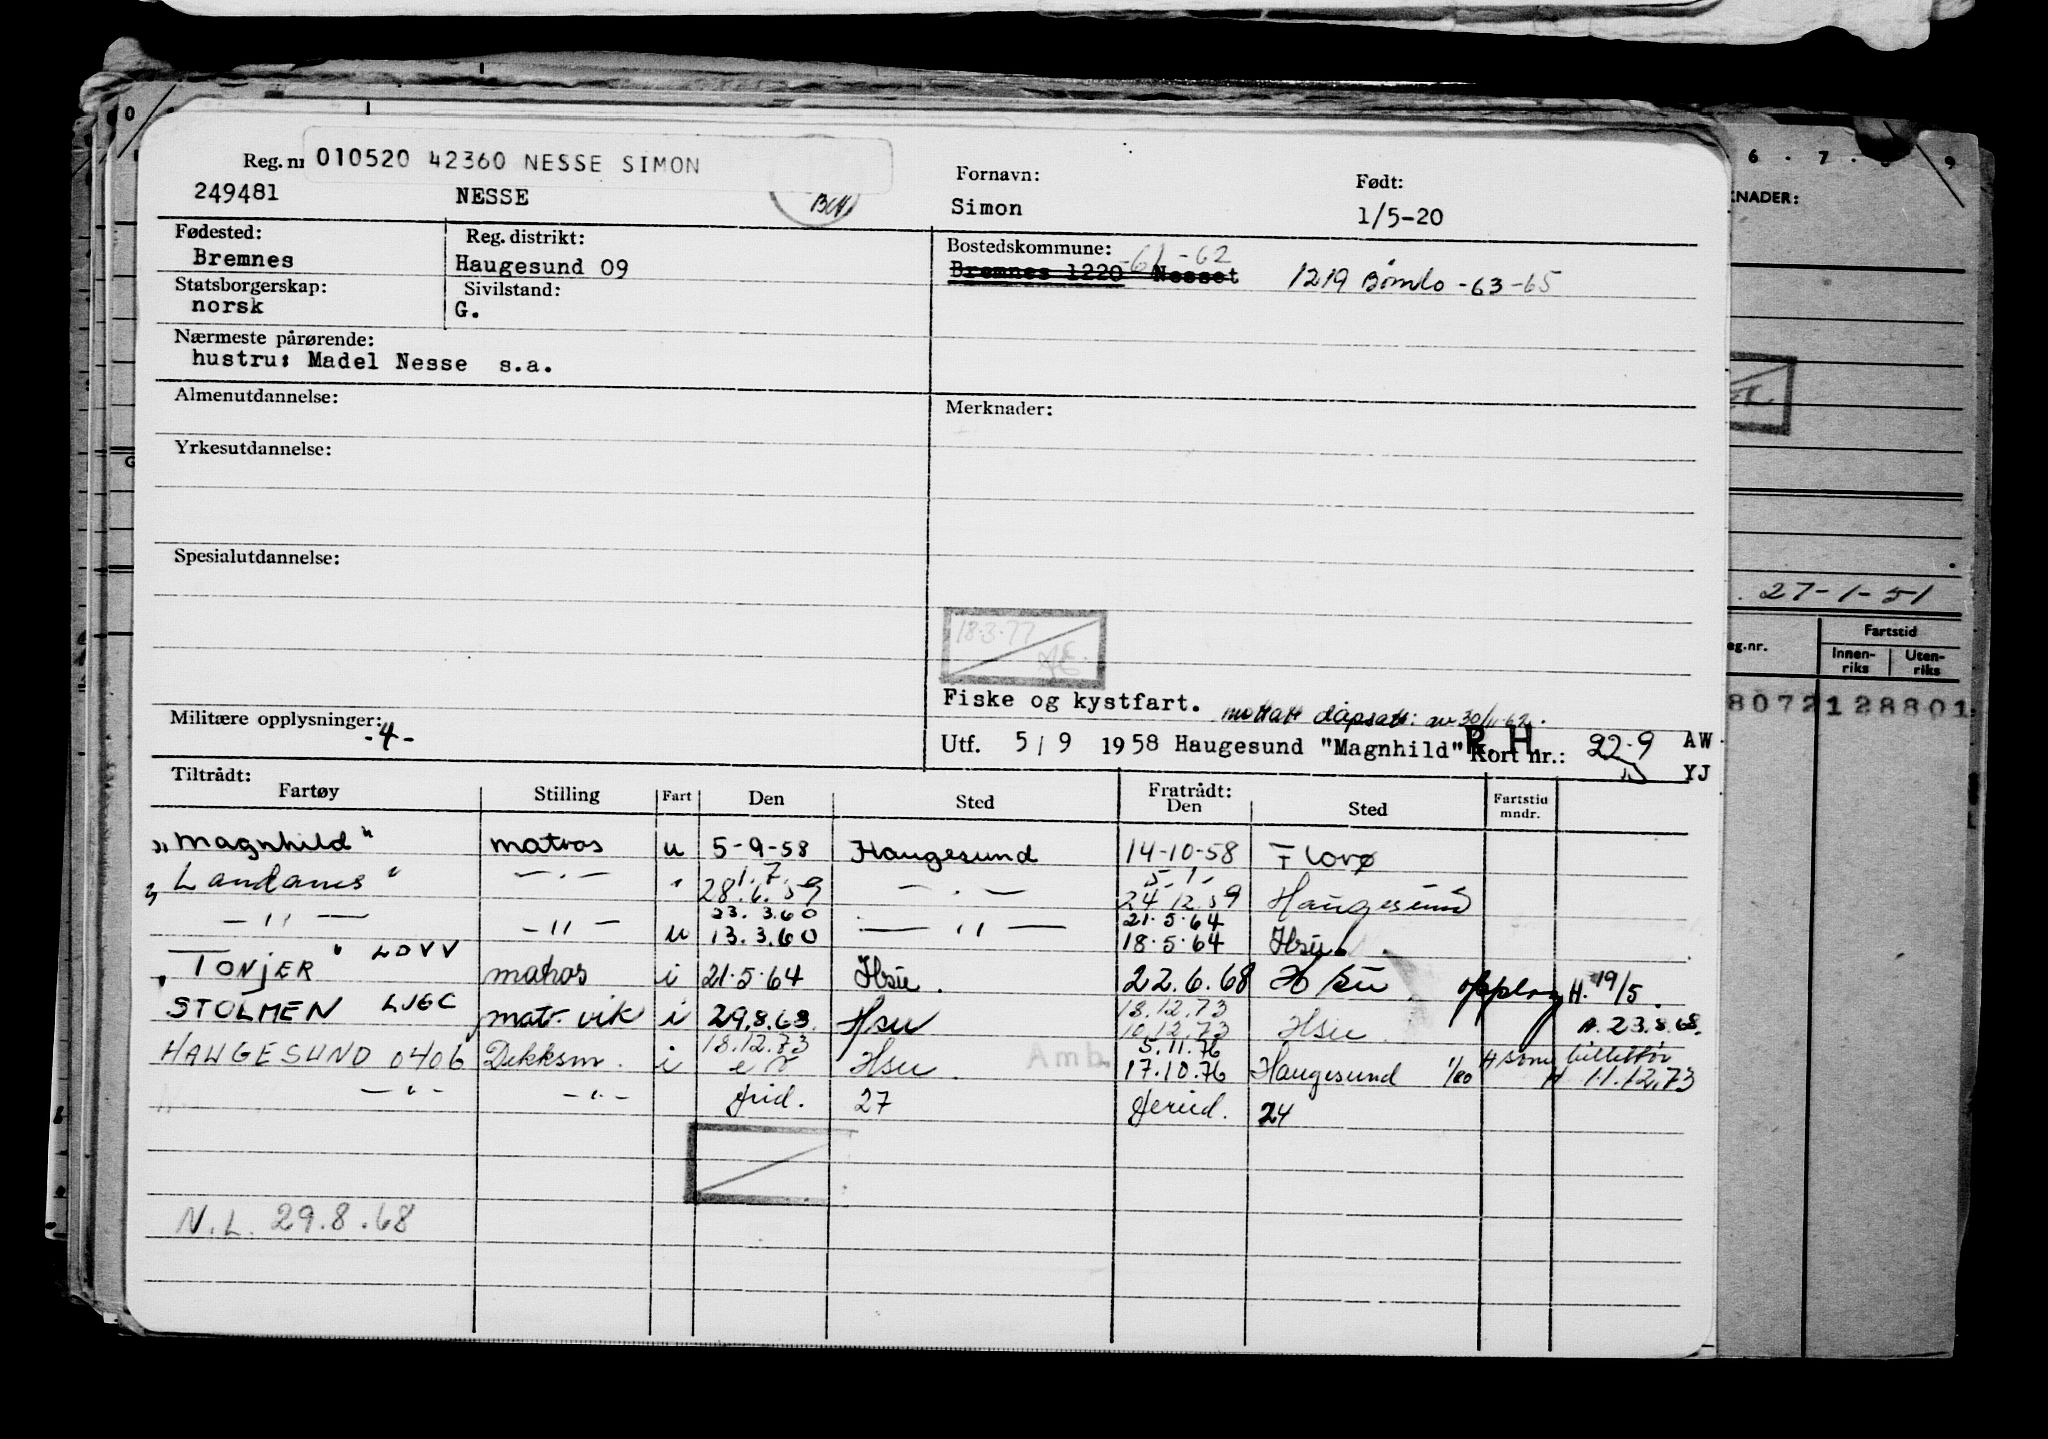 Reg. nr 010520 42360 NESSE SIMON
249481 NESSE
Fornavn: Simon
Født: 1/5-20
Fødested: Bremnes
Reg. distrikt: Haugesund 09
Bostedskommune: -61-62
Bremnes 1220 Nesset 1219 Bømlo -63-65
Statsborgerskap: norsk
Sivilstand: G.
Nærmeste pårørende:
hustru: Madel Nesse s.a.
Almenutdannelse:
Merknader:
Yrkesutdannelse:
Spesialutdannelse:
18.3.77
Fiske og kystfart. mottatt av 30/11-62.
Militære opplysninger: -4-
Utf. 5/9 1958 Haugesund "Magnhild" R. H. Kort nr.: 22-9 AW
YJ
Tiltrådt: Fratrådt:
Fartøy Stilling Fart Den Sted Den Sted Fartstid mndr.
"Magnhild" matros u 5-9-58 Haugesund 14-10-58 Florø
1.7. 5.1.
" -"- " 28.6.59 -"- 24.12.59 Haugesund
23.3.60 21.5.64
-"- -"- u 13.3.60 -"- 18.5.64 Hsu.
"TONJER" LDVV matros i 21.5.64 Hsu. 22.6.68 Hsu opplag H. 19/5.
18.12.73
STOLMEN LJGC mat. vik i 29.8.68 Hsu 10.12.73 Hsu A. 23.8.68.
18.12.73 5.11.76
HAUGESUND 0406 Dekksm. i Hsu. Amb. 17.10.76 Haugesund 1/80 H som billettør
H 11.12.73
-"- -"- 27 24
N.L. 29.8.68
0
G
6 . 7 . 8 . 9
KNADER:
27-1-51
eg.nr.
Fartstid
Innen-riks Uten-riks
80721 28801